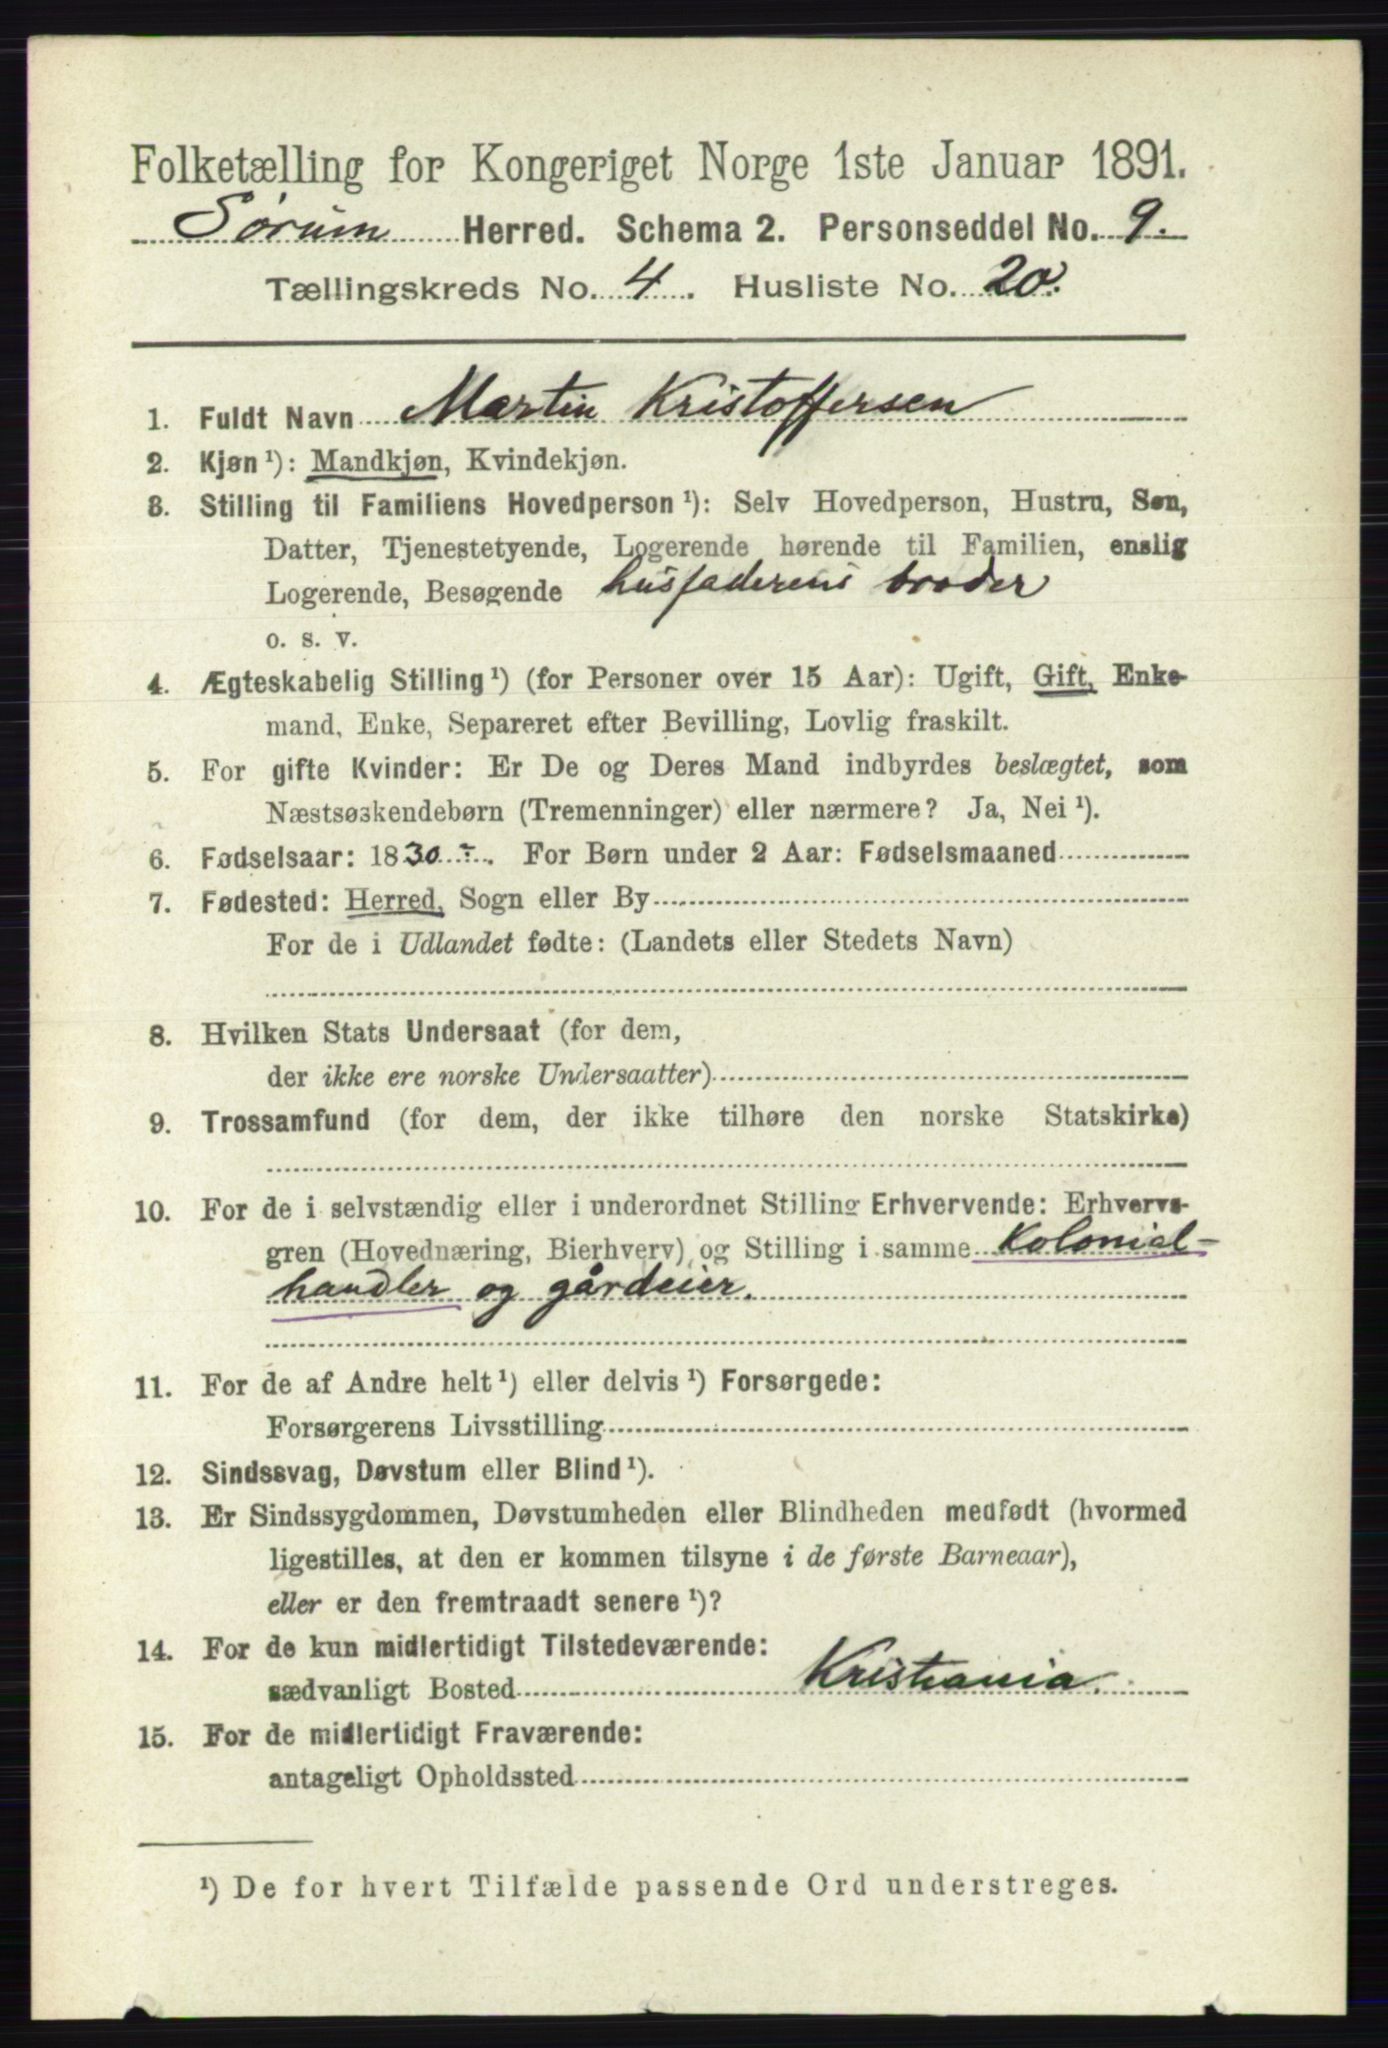 Folketælling for Kongeriget Norge 1ste Januar 1891.
Sørum Herred. Schema 2. Personseddel No. 9.
Tællingskreds No. 4. Husliste No. 20.
1. Fuldt Navn Martin Kristoffersen
2. Kjøn ¹): Mandkjøn, Kvindekjøn.
3. Stilling til Familiens Hovedperson ¹): Selv Hovedperson, Hustru, Søn,
Datter, Tjenestetyende, Logerende hørende til Familien, enslig
Logerende, Besøgende husfaderens broder
o. s. v.
4. Ægteskabelig Stilling ¹) (for Personer over 15 Aar): Ugift, Gift, Enke-
mand, Enke, Separeret efter Bevilling, Lovlig fraskilt.
5. For gifte Kvinder: Er De og Deres Mand indbyrdes beslægtet, som
Næstsøskendebørn (Tremenninger) eller nærmere? Ja, Nei ¹).
6. Fødselsaar: 1830. For Børn under 2 Aar: Fødselsmaaned
7. Fødested: Herred, Sogn eller By
For de i Udlandet fødte: (Landets eller Stedets Navn)
8. Hvilken Stats Undersaat (for dem,
der ikke ere norske Undersaatter)
9. Trossamfund (for dem, der ikke tilhøre den norske Statskirke)
10. For de i selvstændig eller i underordnet Stilling Erhvervende: Erhvervs-
gren (Hovednæring, Bierhverv) og Stilling i samme Kolonial-
handler og gårdeier.
11. For de af Andre helt ¹) eller delvis ¹) Forsørgede:
Forsørgerens Livsstilling
12. Sindssvag, Døvstum eller Blind ¹).
13. Er Sindssygdommen, Døvstumheden eller Blindheden medfødt (hvormed
ligestilles, at den er kommen tilsyne i de første Barneaar),
eller er den fremtraadt senere ¹)?
14. For de kun midlertidigt Tilstedeværende:
sædvanligt Bosted Kristiania.
15. For de midlertidigt Fraværende:
antageligt Opholdssted
¹) De for hvert Tilfælde passende Ord understreges.